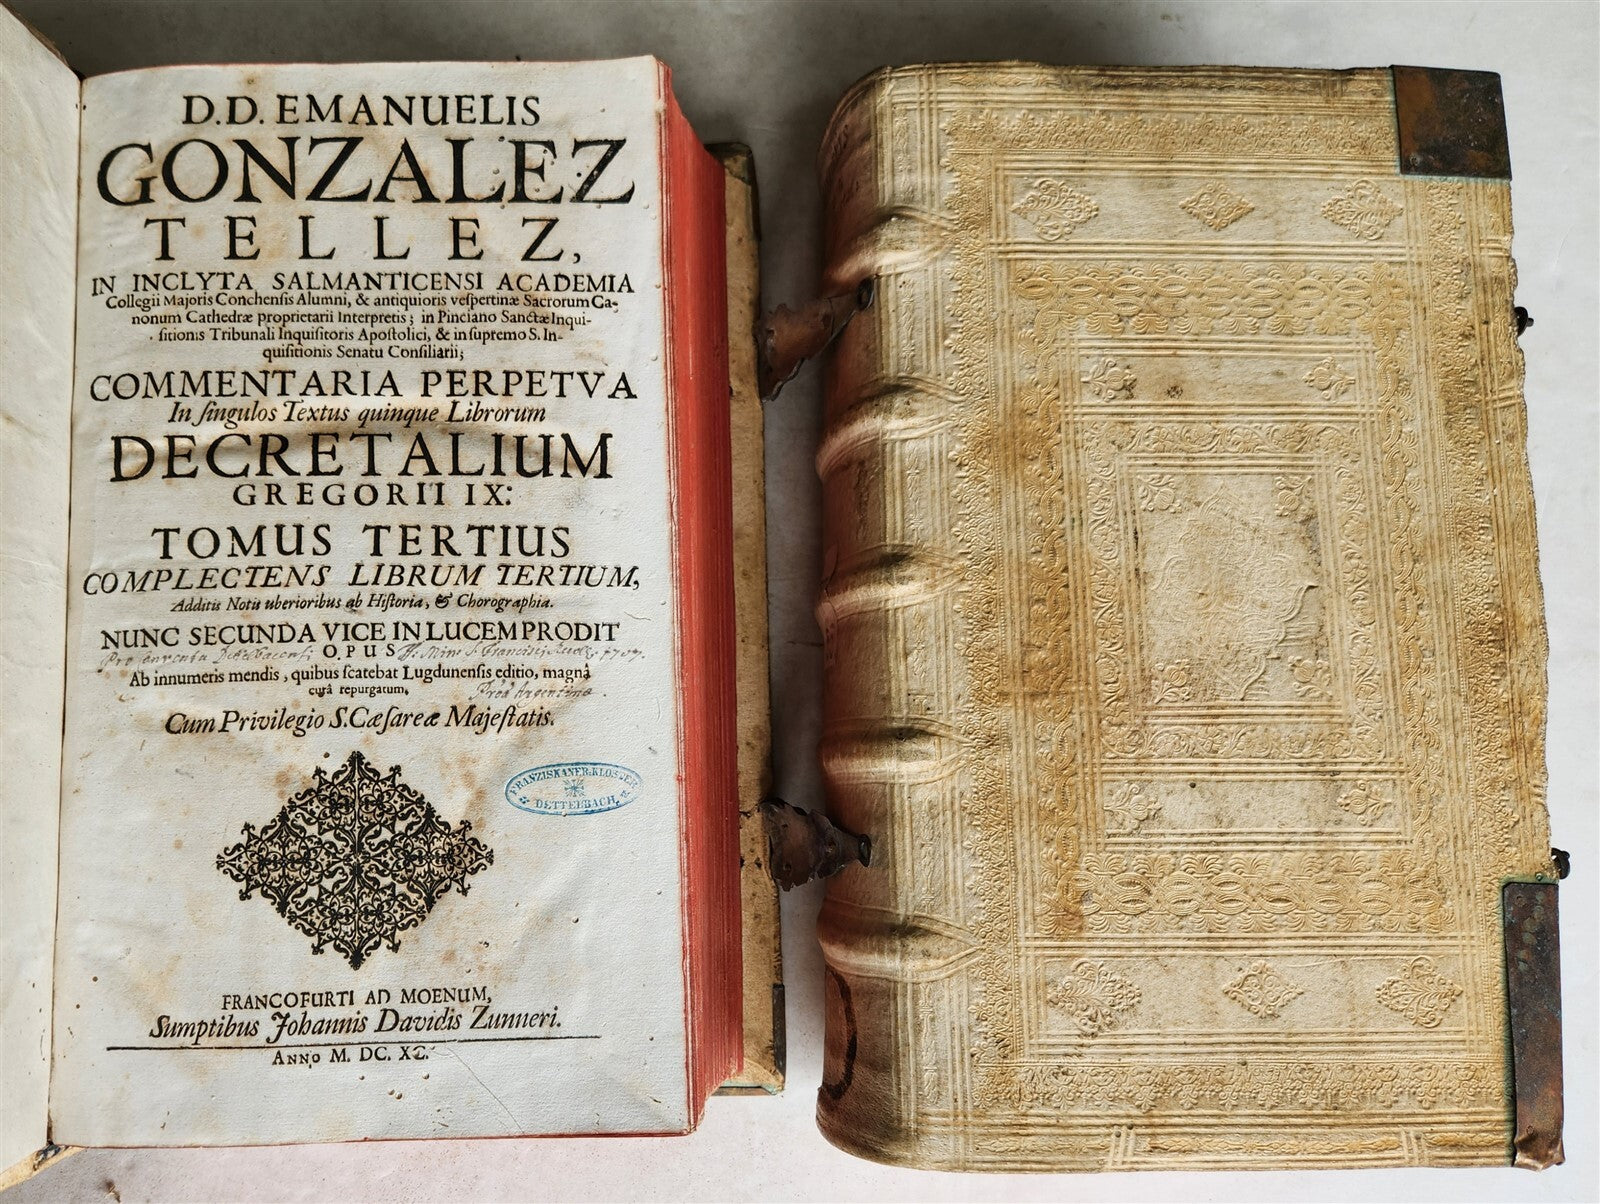 D.D. EMANUELIS
GONZALEZ
TELLEZ,
IN INCLYTA SALMANTICENSI ACADEMIA
Collegii Majoris Conchensis Alumni, & antiquioris vespertinæ Sacrorum Ca-
nonum Cathedræ proprietarii Interpretis; in Pinciano Sanctæ Inqui-
sitionis Tribunali Inquisitoris Apostolici, & in supremo S. In-
quisitionis Senatu Consiliarii;
COMMENTARIA PERPETVA
In singulos Textus quinque Librorum
DECRETALIUM
GREGORII IX:
TOMUS TERTIUS
COMPLECTENS LIBRUM TERTIUM,
Additis Notis uberioribus ab Historia, & Chorographia.
NUNC SECUNDA VICE IN LUCEM PRODIT
OPUS
Ab innumeris mendis, quibus scatebat Lugdunensis editio, magnâ
curâ repurgatum,
Cum Privilegio S. Cæsareæ Majestatis.
FRANZISKANER-KLOSTER
DETTELBACH
FRANCOFURTI AD MOENUM,
Sumptibus Johannis Davidis Zunneri.
ANNO M. DC. XC.